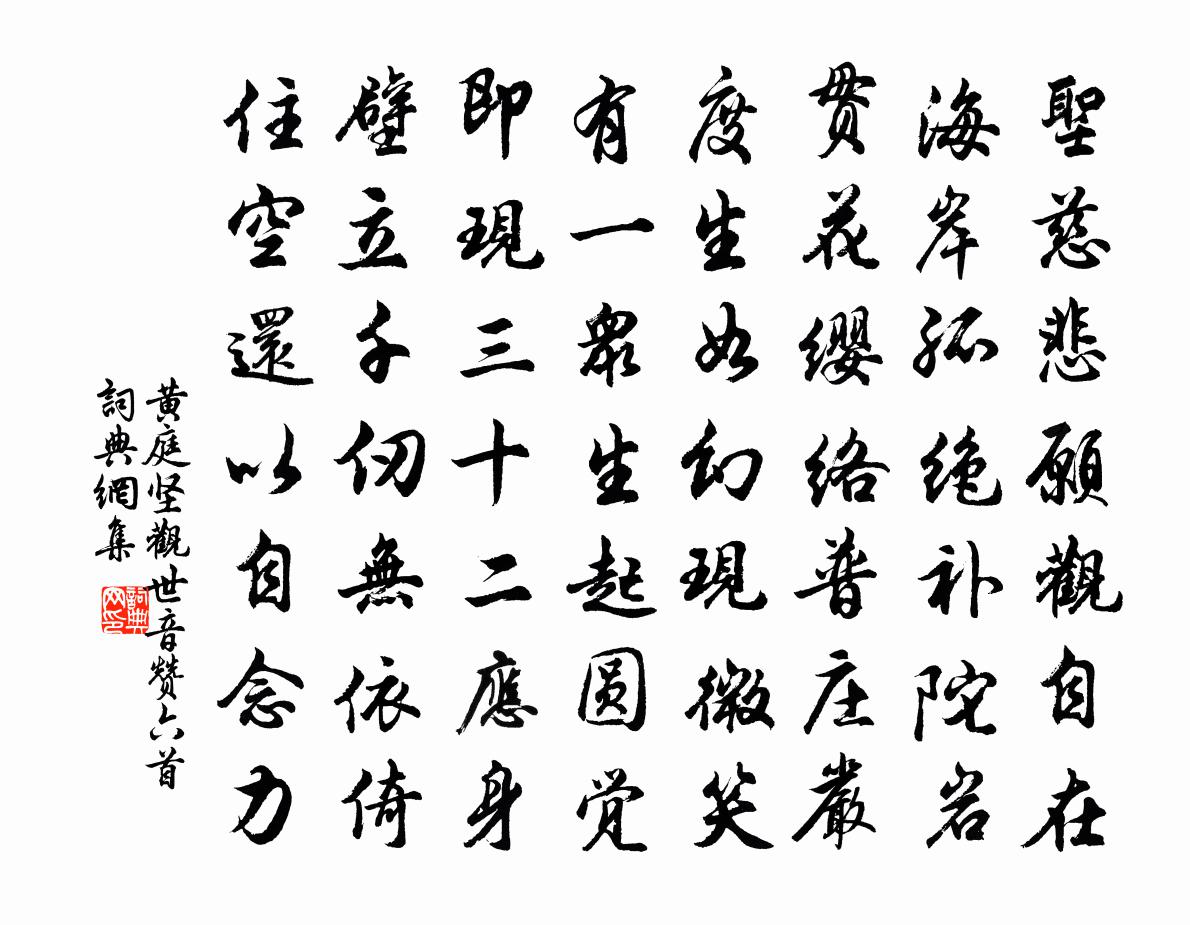 聖慈悲願觀自在
海岸孤绝补陀岩
贯花缨络普庄嚴
度生如幻現微笑
有一眾生起圆觉
即現三十二應身
壁立千仞無依倚
住空還以自念力
黄庭坚觀世音贊六首
詞典網集
詞典网印